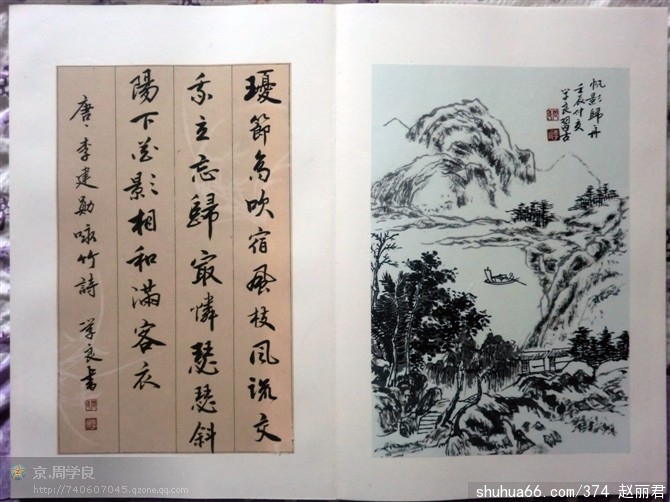 瓊節高吹宿鳳枝風流交
我立忘歸最憐瑟瑟斜
陽下花影相和滿客衣
唐、李建勛咏竹詩 学良書
帆影歸舟
壬辰仲夏
学良習古
京.周学良
http://740607045.qzone.qq.com
shuhua66.com/374 赵丽君